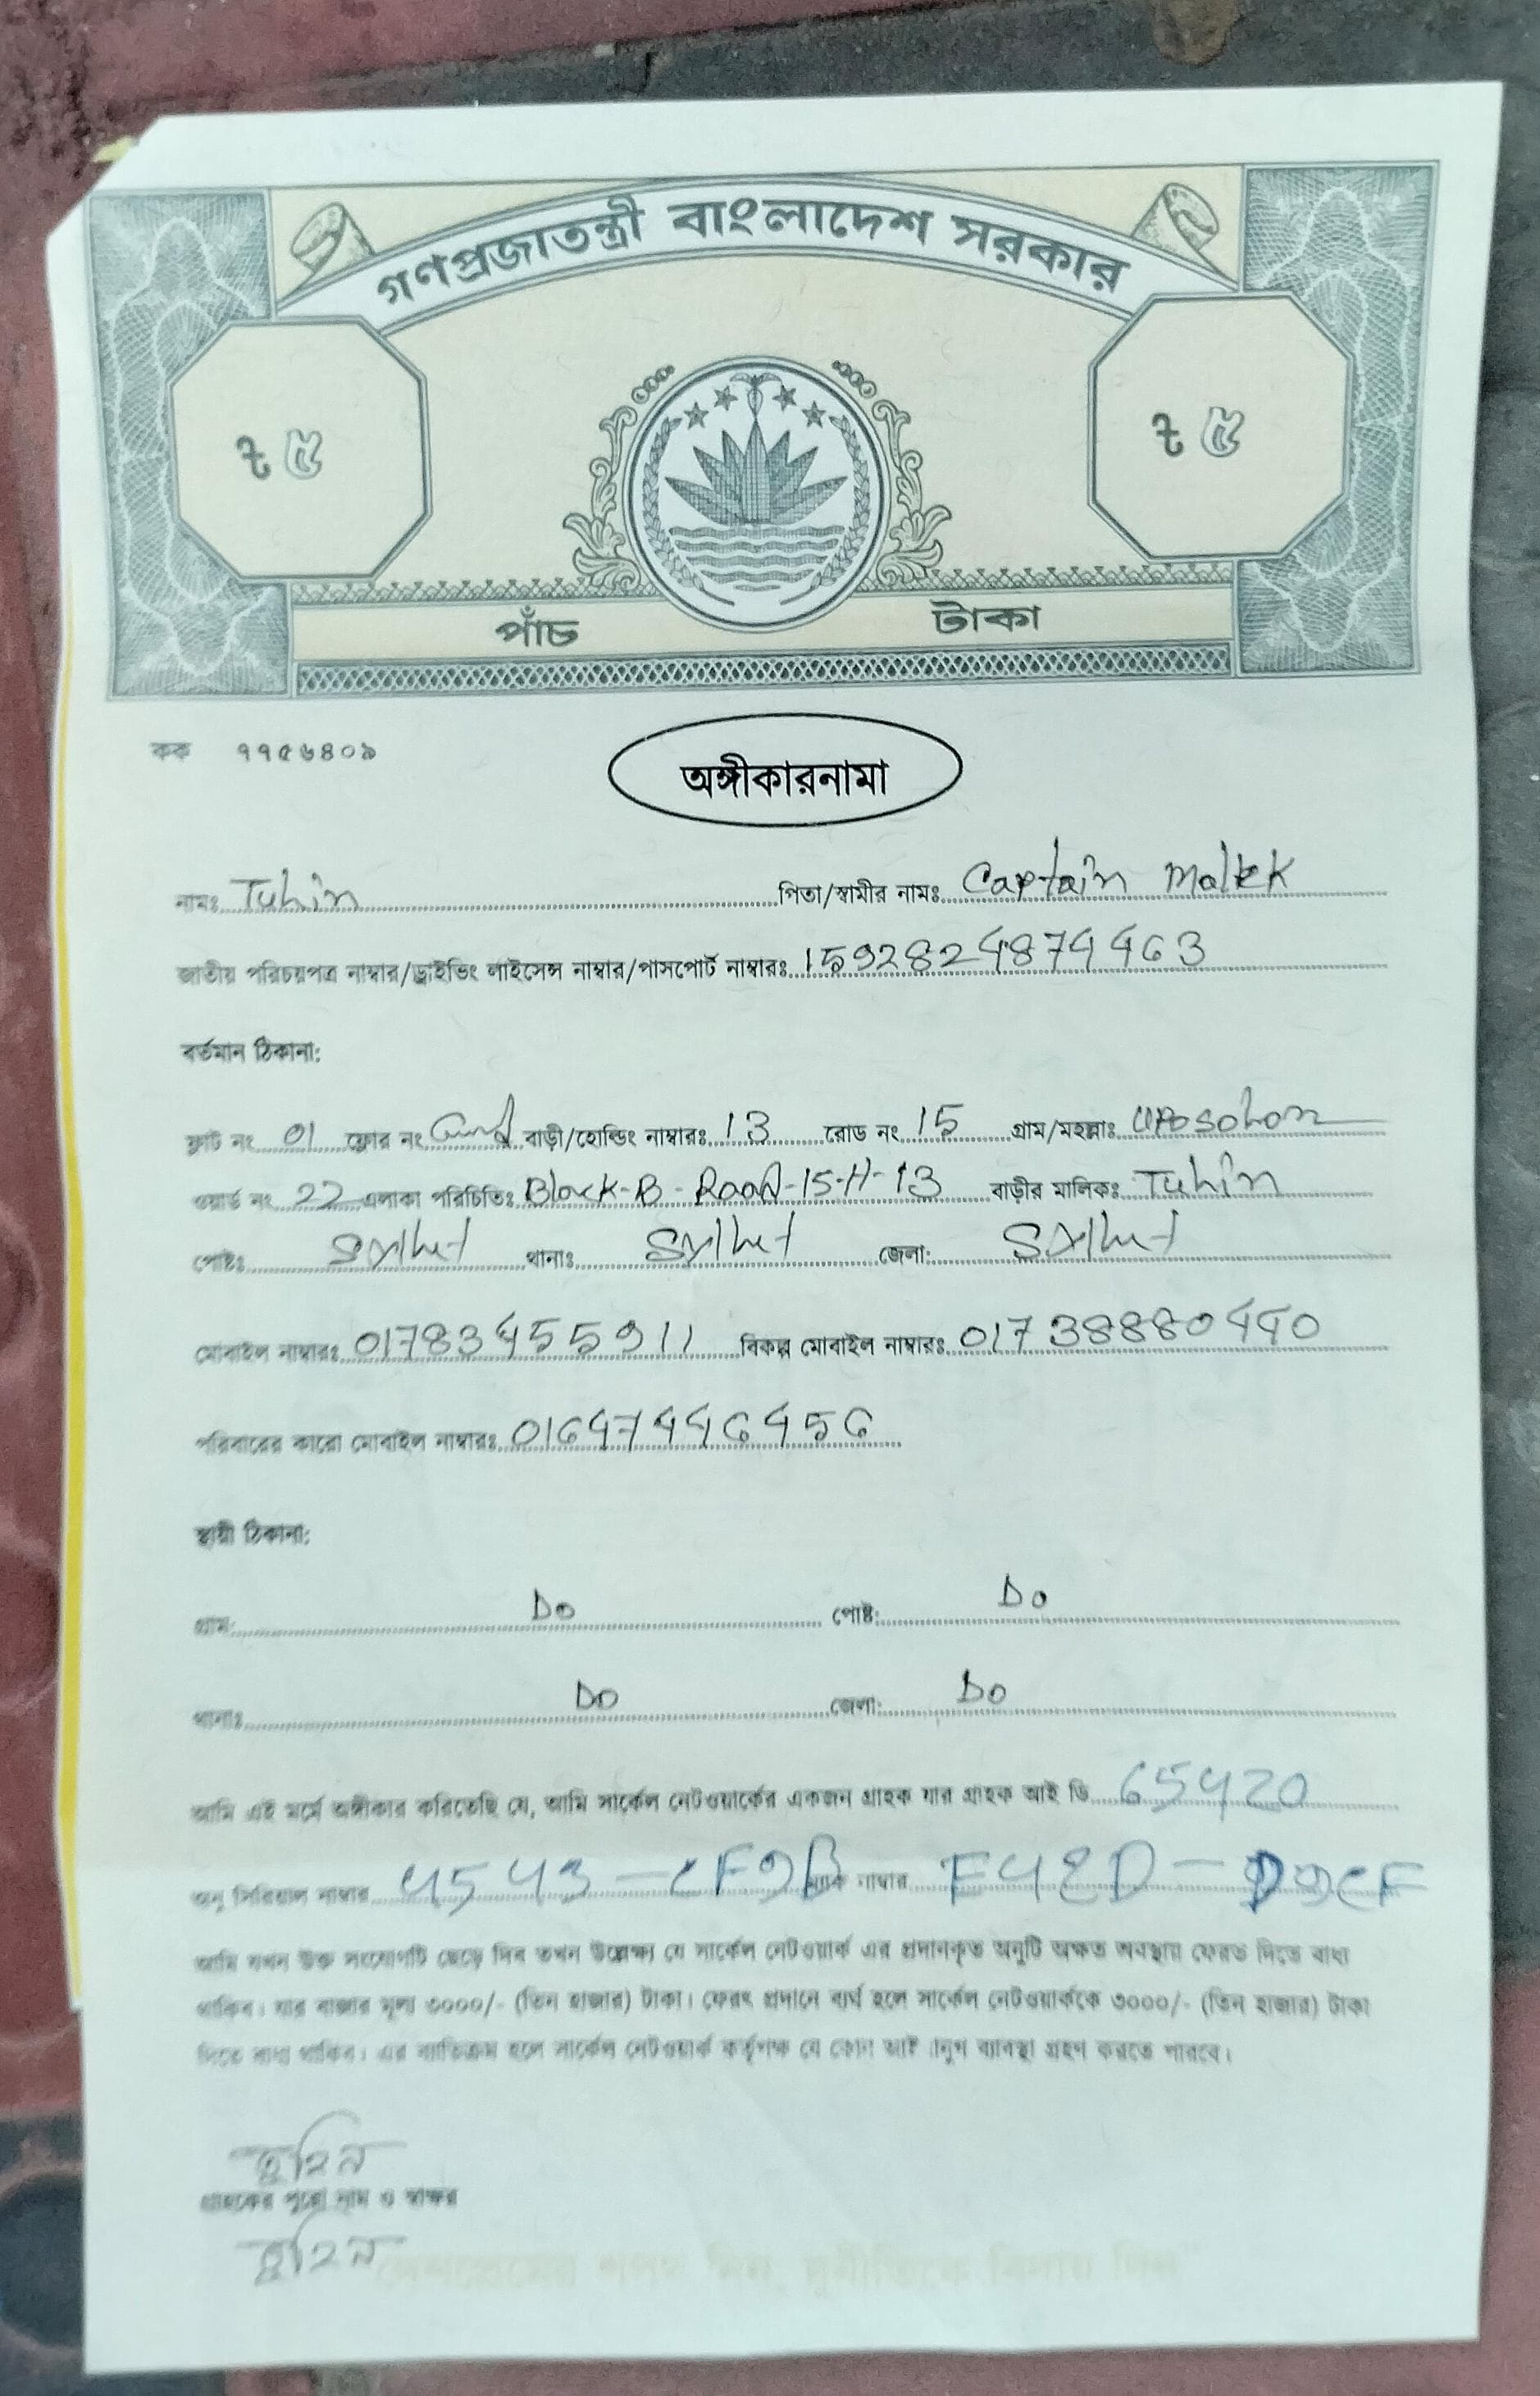 গণপ্রজাতন্ত্রী বাংলাদেশ সরকার
৳ ৫ ৳ ৫
পাঁচ টাকা
কক ৭৭৫৬৪০৯
অঙ্গীকারনামা
নামঃ Tuhin পিতা/স্বামীর নামঃ Captain Malek
জাতীয় পরিচয়পত্র নাম্বার/ড্রাইভিং লাইসেন্স নাম্বার/পাসপোর্ট নাম্বারঃ 1592824874463
বর্তমান ঠিকানা:
ফ্লাট নং 01 ফ্লোর নং বাড়ী/হোল্ডিং নাম্বারঃ 13 রোড নং 15 গ্রাম/মহল্লাঃ
ওয়ার্ড নং 22 এলাকা পরিচিতিঃ Block-B-Road-15-H-13 বাড়ীর মালিকঃ Tuhin
পোষ্টঃ Sylhet থানাঃ Sylhet জেলা: Sylhet
মোবাইল নাম্বারঃ 01783455911 বিকল্প মোবাইল নাম্বারঃ 01738880440
পরিবারের কারো মোবাইল নাম্বারঃ 01647446456
স্থায়ী ঠিকানা:
গ্রাম: Do পোষ্ট: Do
থানাঃ Do জেলা: Do
আমি এই মর্মে অঙ্গীকার করিতেছি যে, আমি সার্কেল নেটওয়ার্কের একজন গ্রাহক যার গ্রাহক আই ডি 65420
অনু সিরিয়াল নাম্বার 4543-CF9B ম্যাক নাম্বার F42D-
আমি যখন উক্ত সংযোগটি ছেড়ে দিব তখন উল্লেক্ষ্য যে সার্কেল নেটওয়ার্ক এর প্রদানকৃত অনুটি অক্ষত অবস্থায় ফেরত দিতে বাধ্য
থাকিব। যার বাজার মূল্য ৩০০০/- (তিন হাজার) টাকা। ফেরৎ প্রদানে ব্যর্থ হলে সার্কেল নেটওয়ার্ককে ৩০০০/- (তিন হাজার) টাকা
দিতে বাধ্য থাকিব। এর ব্যতিক্রম হলে সার্কেল নেটওয়ার্ক কর্তৃপক্ষ যে কোন ব্যাবস্থা গ্রহণ করতে পারবে।
তুহিন
গ্রাহকের পুরো নাম ও স্বাক্ষর
তুহিন